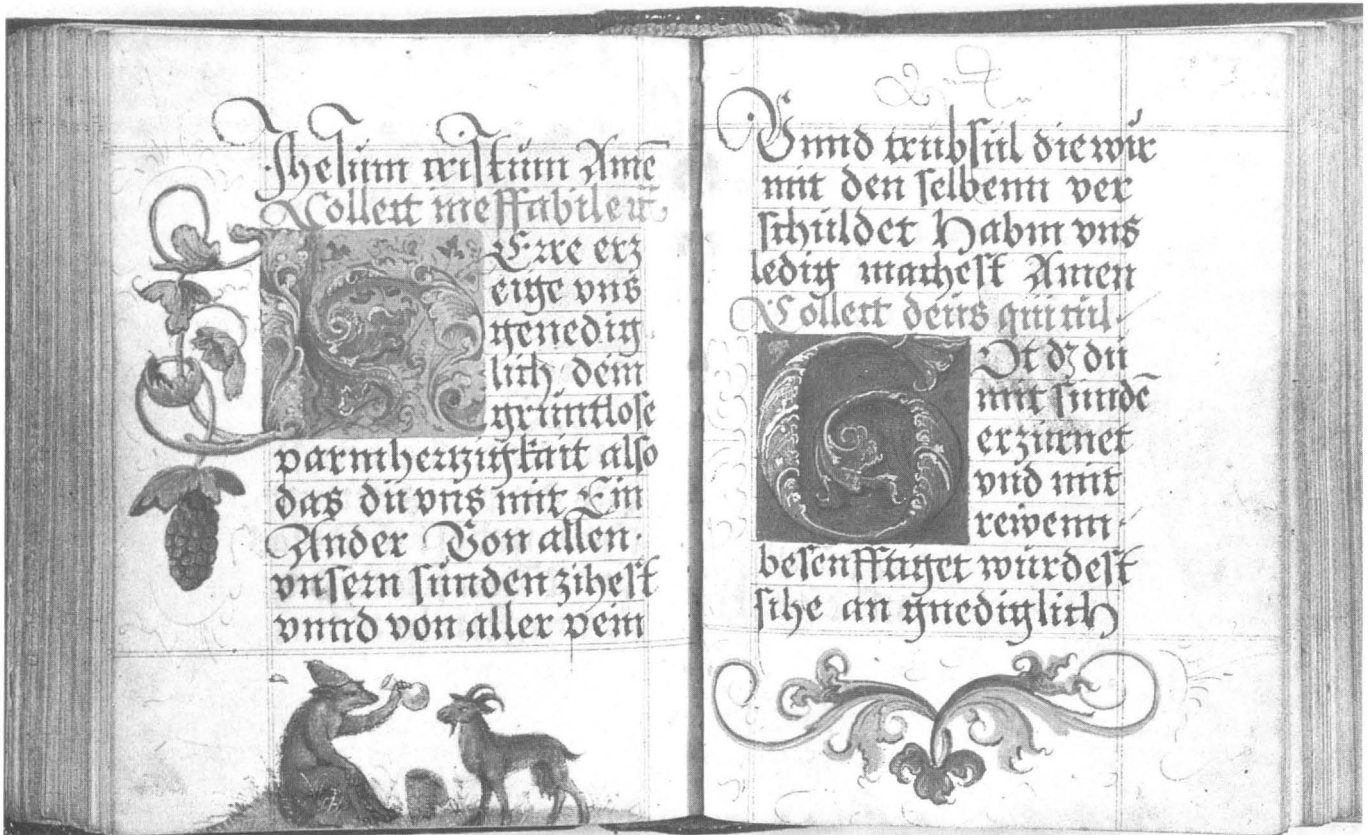 Jhesum cristum Amē
Collect ineffabilem
HErre erz
eige vns
genedig
lich dein
gruntlose
parmhertzigkait also
das du vns mit Ein
Ander Von allen
vnsern sunden zihest
vnnd von aller pein
Vnnd trubsal die wir
mit den selbenn ver
schuldet Habm vns
ledig machest Amen
Collect deus qui cul
GOt dz du
mit sundē
erzurnet
vnd mit
rewenn
besenfftiget wurdest
sihe an gnediglich